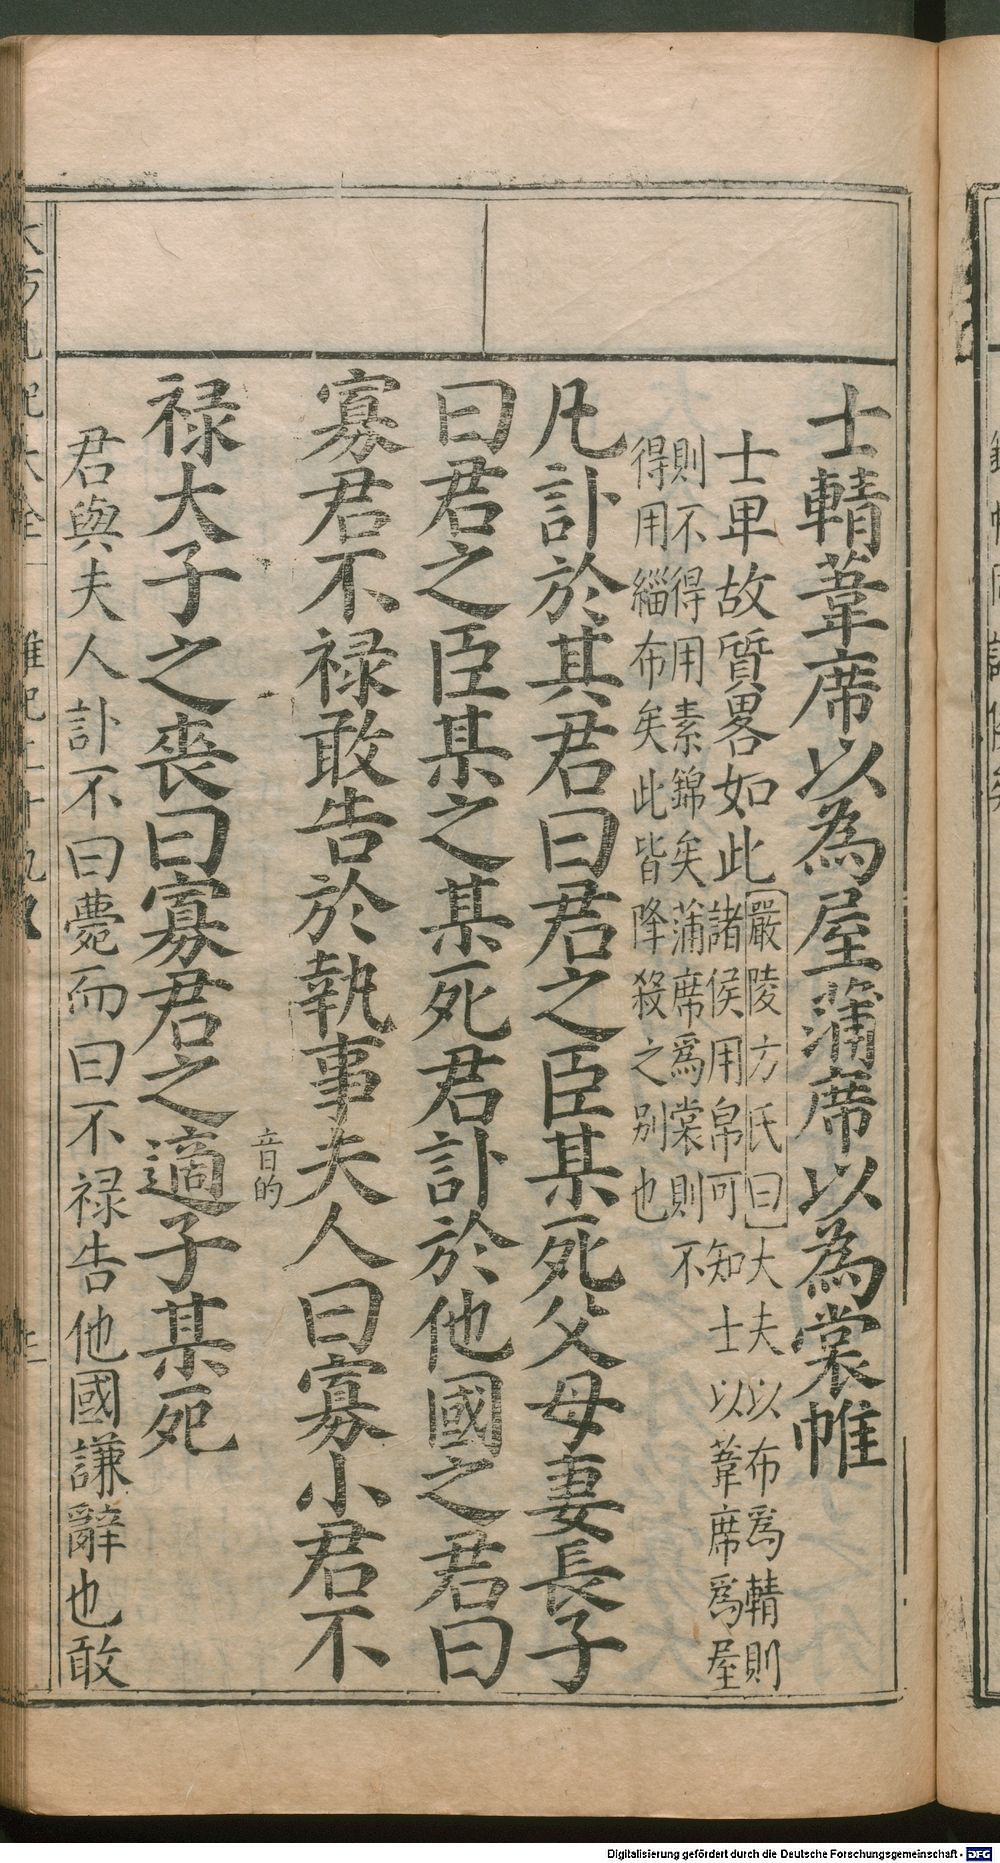 士輤葦席以為屋蒲席以為裳帷
士卑故質畧如此
嚴陵方氏曰大夫以布爲輤則
諸侯用帛可知士以葦席爲屋
則不得用素錦矣蒲席爲裳則不
得用緇布矣此皆降殺之别也
凡訃於其君曰君之臣某死父母妻長子
曰君之臣某之某死君訃於他國之君曰
寡君不禄敢告於執事夫人曰寡小君不
音的
禄大子之喪曰寡君之適子某死
君與夫人訃不曰薨而曰不禄告他國謙辭也敢
Digitalisierung gefördert durch die Deutsche Forschungsgemeinschaft - DFG